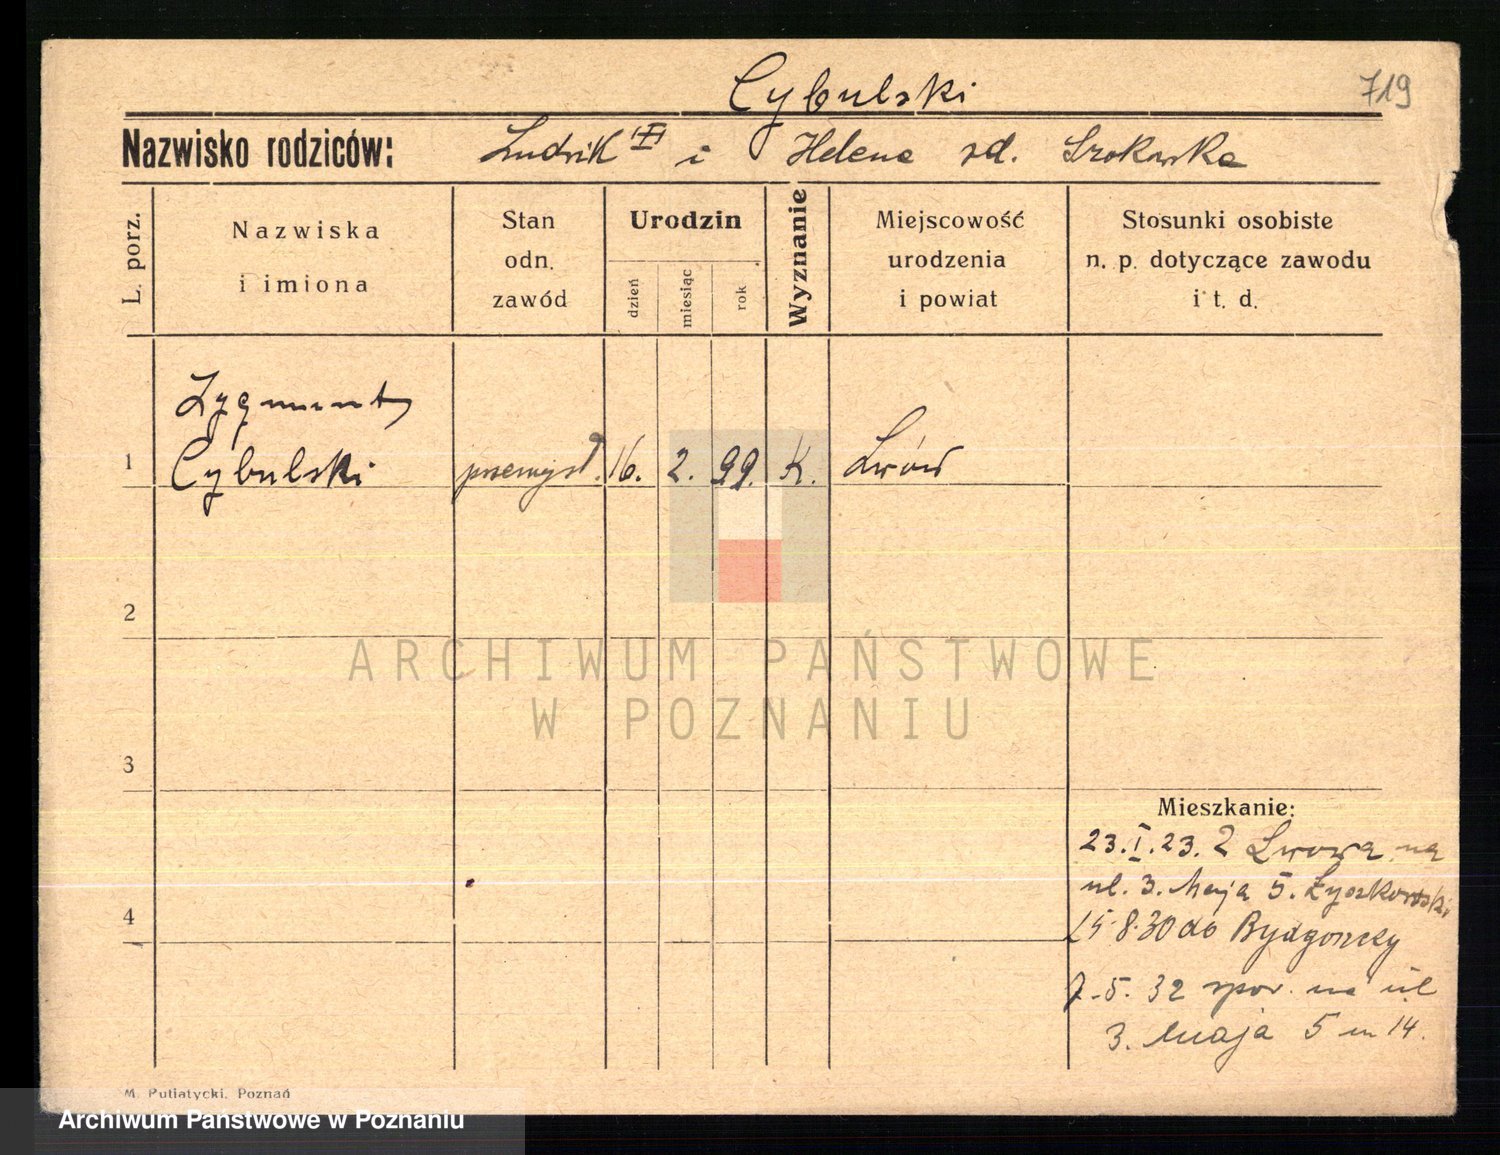 Cybulski 719
Nazwisko rodziców: Ludwik i Helena zd.
L. porz.
Nazwiska
i imiona
Stan
odn.
zawód
Urodzin
dzień
miesiąc
rok
Wyznanie
Miejscowość
urodzenia
i powiat
Stosunki osobiste
n. p. dotyczące zawodu
i t. d.
Zygmunt
1 Cybulski przemysł. 16. 2. 99. K. Lwów
2
ARCHIWUM PAŃSTWOWE
W POZNANIU
3
Mieszkanie:
23.I.23. Z Lwowa na
ul. 3. Maja 5. Łyszkowski
4
15.8.30 do Bydgoszczy
7.5.32 spow. na ul
3. Maja 5 m 14.
M. Putiatycki, Poznań
Archiwum Państwowe w Poznaniu